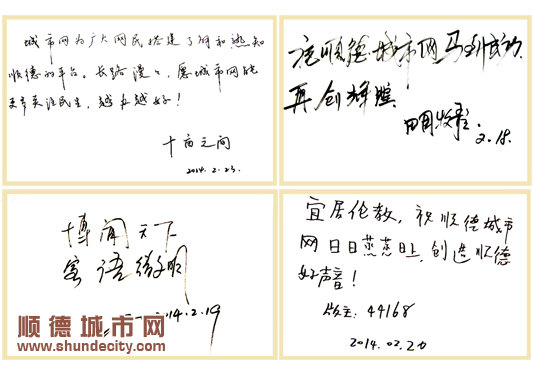 城市网为广大网民搭建了解和熟知
顺德的平台。长路漫漫，愿城市网能
更多关注民生，越办越好！
十亩之间
2014.2.23.
祝顺德城市网马到成功，
再创辉煌
2.18.
博闻天下
2014.2.19
宜居伦教，祝顺德城市
网日日蒸蒸日上，创造顺德
好声音！
版主：44168
2014.02.20
顺德城市网
www.shundecity.com